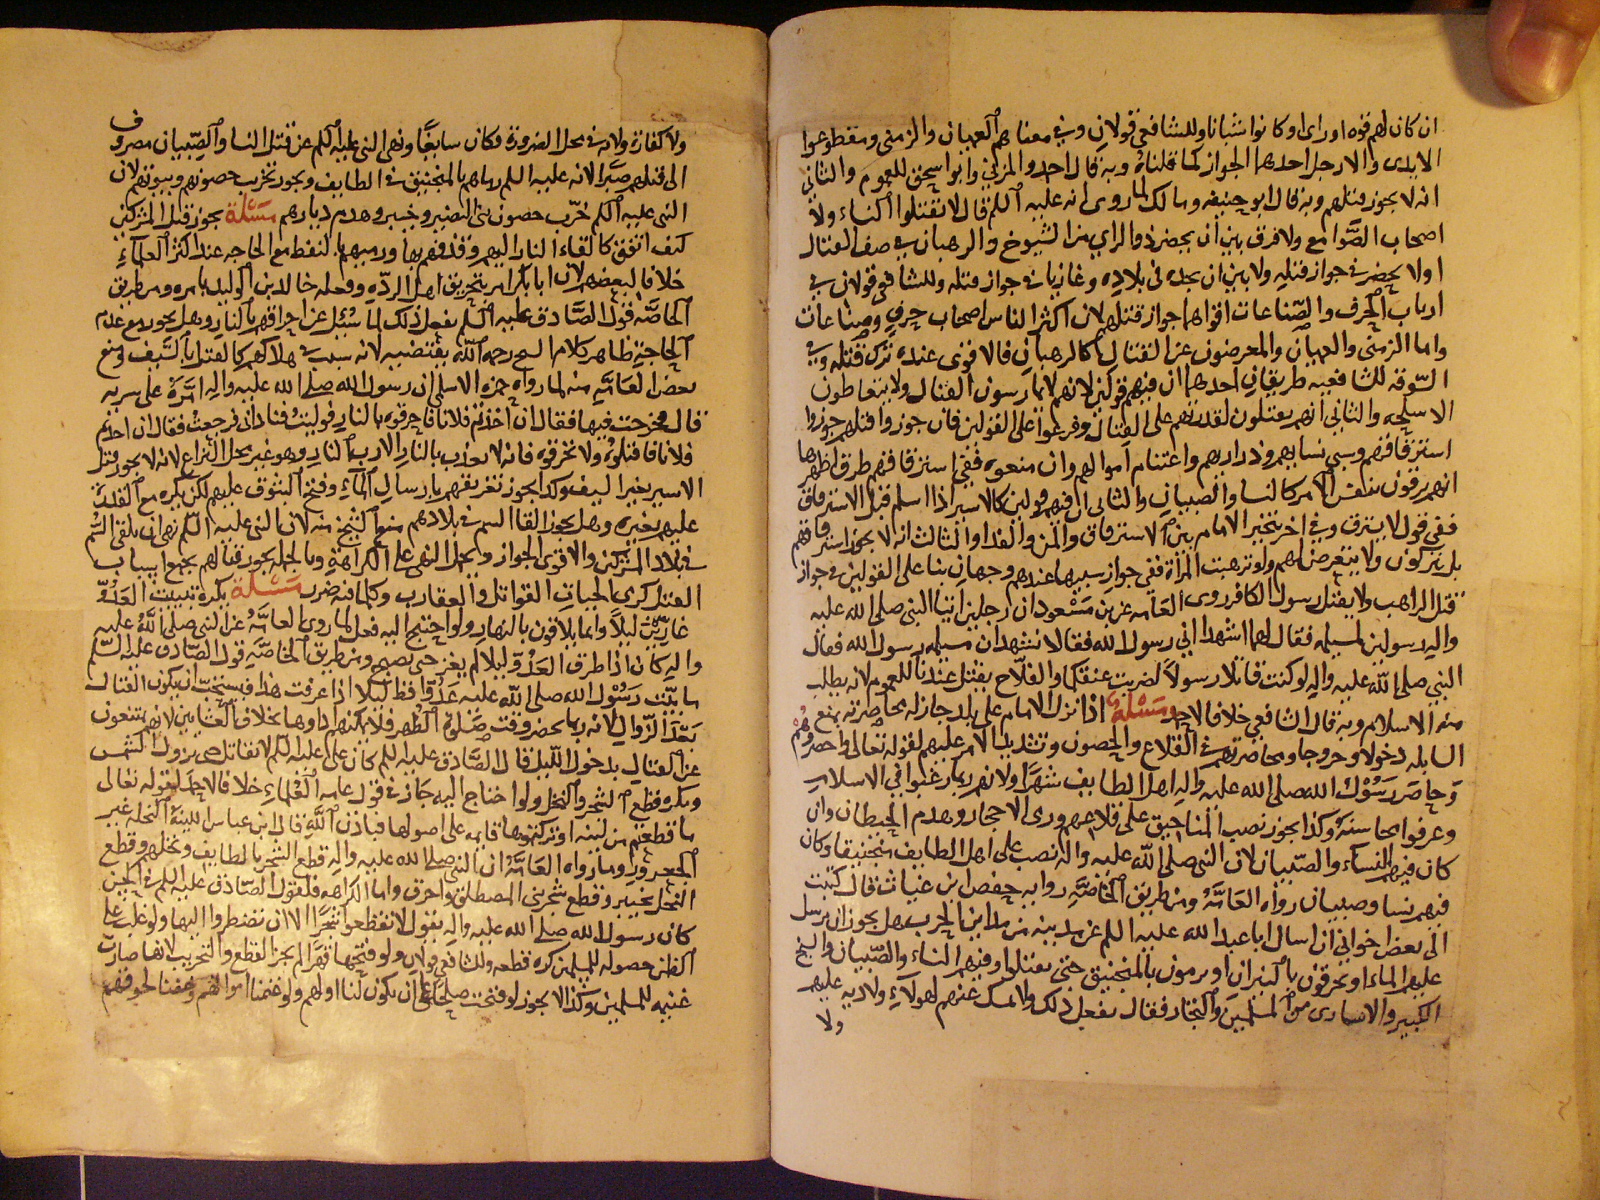 ان كان لهم قوه او راى او كانوا شبانا وللشافعي قولان وفي معناهم العميان والزمنى ومقطوعوا
الايدى والارجل احدهما الجواز لما قلناه وبه قال احمد والمزني وابو اسحق للعموم والثاني
انه لا يجوز قتلهم وبه قال ابو حنيفه ومالك لما روى انه عليه السلم قال لا تقتلوا النساء ولا
اصحاب الصوامع ولا فرق بين ان يحضر ذو الراي من الشيوخ والرهبان في صف القتال
او لا يحضر في جواز قتله ولا بين ان نجده في بلاده وغازيا في جواز قتله وللشافعي قولان في
ارباب الحرف والصناعات اقواهما جواز قتلهم لان اكثر الناس اصحاب حرف وصناعات
واما الزمنى والعميان والمعرضون عن القتال كالرهبان فالاقوى عنده ترك قتله وفي
السوقه للشافعيه طريقان احدهما ان فيهم قولين لانهم لا يمارسون القتال ولا يتعاطون
الاسلحه والثاني انهم يقتلون لقدرتهم على القتال وفرعوا على القولين فان جوزوا قتلهم جوزوا
استرقاقهم وسبي نسايهم وذراريهم واغتنام اموالهم وان منعوه ففي استرقاقهم طرق اظهرها
انهم يرقون بنفس الاسر كالنسا والصبيان والثانى ان فيهم قولين كالاسير اذا اسلم قبل الاسترقاق
ففي قول لا يسترق وفي اخر يتخير الامام بين الاسترقاق والمن والفدا والثالث انه لا يجوز استرقاقهم
بل يتركون ولا يتعرض لهم ولو ترهبت المراة ففي جواز سبيها عندهم وجهان بنا على القولين في جواز
قتل الراهب ولا يقتل رسول الكافر روى العامه عن ابن مسعود ان رجلين اتيا النبي صلى الله عليه
واله رسولين لمسيلمه فقال لهما اشهدا اني رسول الله فقالا نشهد ان مسيلمه رسول الله فقال
النبي صلى الله عليه واله لو كنت قاتلا رسولا لضربت عنقكما والفلاح يقتل عندنا للعموم لانه يطلب
منه الاسلام وبه قال الشافعي خلافا لاحمد مسئلة اذا نزل الامام على بلد جاز له محاصرته بمنع
السابله دخولا وخروجا ومحاصرتهم في القلاع والحصون وتشديد الامر عليهم لقوله تعالى واحصروهم
وحاصر رسول الله صلى الله عليه واله اهل الطايف شهرا ولانهم ربما رغبوا في الاسلام
وعرفوا محاسنه وكذا يجوز نصب المناجيق على قلاعهم ورمى الاحجار وهدم الحيطان وان
كان فيهم النساء والصبيان لان النبي صلى الله عليه واله نصب على اهل الطايف منجنيقا وكان
فيهم نسا وصبيان رواه العامة ومن طريق الخاصة رواية حفص بن غياث قال كتب
الى بعض اخواني ان اسال ابا عبد الله عليه السلم عن مدينه من مداين الحرب هل يجوز ان يرسل
عليهم الماء او يحرقون بالنيران او يرمون بالمنجنيق حتى يقتلوا وفيهم النساء والصبيان والشيخ
الكبير والاسارى من المسلمين والتجار فقال يفعل ذلك ولا يمسك عنهم لهولاء ولا دية عليهم
ولا
ولا كفارة ولانه في محل الضرورة فكان سايغا ونهى النبي عليه السلم عن قتل النسا والصبيان مصروف
الى قتلهم صبرا لانه عليه السلم رماهم بالمنجنيق في الطايف ويجوز تخريب حصونهم وبيوتهم لان
النبي عليه السلم خرب حصون بني النضير وخيبر وهدم ديارهم مسئلة يجوز قتل المشركين
كيف اتفق كالقاء النار اليهم وقذفهم بها ورميهم بالنفط مع الحاجه عند اكثر العلماء
خلافا لبعضهم لان ابا بكر امر بتحريق اهل الرده وفعله خالد بن الوليد بامره ومن طريق
الخاصه قول الصادق عليه السلم يفعل ذلك لما سئل عن احراقهم بالنار وهل يجوز مع عدم
الحاجة ظاهر كلام الشيخ رحمه الله يقتضيه لانه سبب في هلاكهم كالقتل بالسيف ومنع
بعض العامة منه لما رواه حمزه الاسلمي ان رسول الله صلى الله عليه واله امره على سريه
قال فخرجت فيها فقال ان اخذتم فلانا فاحرقوه بالنار فوليت فناداني فرجعت فقال ان اخذتم
فلانا فاقتلوه ولا تحرقوه فانه لا يعذب بالنار الا رب النار وهو غير محل النزاع لانه لا يجوز قتل
الاسير بغير السيف وكذا يجوز تغريقهم بارسال الماء وفتح البثوق عليهم لكن يكره مع القدرة
عليهم بغيره وهل يجوز القا السم في بلادهم منع الشيخ منه لان النبي عليه السلم نهى ان يلقى السم
في بلاد المشركين والاقوى الجواز ويحمل النهى على الكراهة وبالجمله يجوز قتالهم بجميع اسباب
القتل كرمى الحيات القواتل والعقارب وكلما فيه ضرر مسئلة يكره تبييت العدو
غارين ليلا وانما يلاقون بالنهار ولو احتيج اليه فعل لما روى العامة عن النبي صلى الله عليه
واله كان اذا طرق العدو ليلا لم يغز حتى يصبح ومن طريق الخاصة قول الصادق عليه السلم
ما بيت رسول الله صلى الله عليه عدوا قط ليلا اذا عرفت هذا فيستحب ان يكون القتال
بعد الزوال لانه ربما يحضر وقت صلوة الظهر فلا يمكنهم اداوها بخلاف العشايين لانهم يمتنعون
عن القتال بدخول الليل قال الصادق عليه السلم كان على عليه السلم لا يقاتل حتى يزول الشمس
ويكره قطع الشجر والنخل ولو احتاج اليه جاز في قول عامه العلماء خلافا لاحمد لقوله تعالى
ما قطعتم من لينة او تركتموها قايمه على اصولها فباذن الله قال ابن عباس اللينة النخلة غير
الجعرور وما رواه العامة ان النبي صلى الله عليه واله قطع الشجر بالطايف ونخلهم وقطع
النخل بخيبر وقطع شجر بني المصطلق واحرق واما الكراهه فلقول الصادق عليه السلم في الحسن
كان رسول الله صلى الله عليه واله يقول لا تقطعوا شجرا الا ان تضطروا اليها ولو غلب على
الظن حصوله للمسلمين كره قطعه وللشافعي قولان ولو فتحها قهرا لم يجز القطع والتخريب لانها صارت
غنيمه للمسلمين وكذا لا يجوز لو فتحت صلحا على ان يكون لنا او لهم ولو غنمنا اموالهم وخفنا لحوقهم